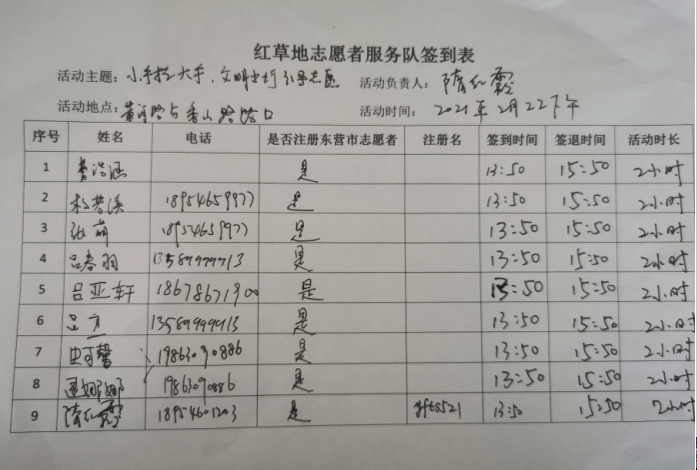 红草地志愿者服务队签到表
活动主题：小手拉大手、文明出行引导志愿 活动负责人：隋红霞
活动地点：黄河路与香山路路口 活动时间：2021年2月22下午
序号 姓名 电话 是否注册东营市志愿者 注册名 签到时间 签退时间 活动时长
1 曹浩涵 是 13:50 15:50 2小时
2 18954659977 是 13:50 15:50 2小时
3 张萌 18954659977 是 13:50 15:50 2小时
4 吕春羽 13589999913 是 13:50 15:50 2小时
5 吕亚轩 18678671900 是 13:50 15:50 2小时
6 吕方 13589999913 是 13:50 15:50 2小时
7 19863090886 是 13:50 15:50 2小时
8 1986309886 是 13:50 15:50 2小时
9 隋红霞 18954601203 是 13:50 15:50 2小时